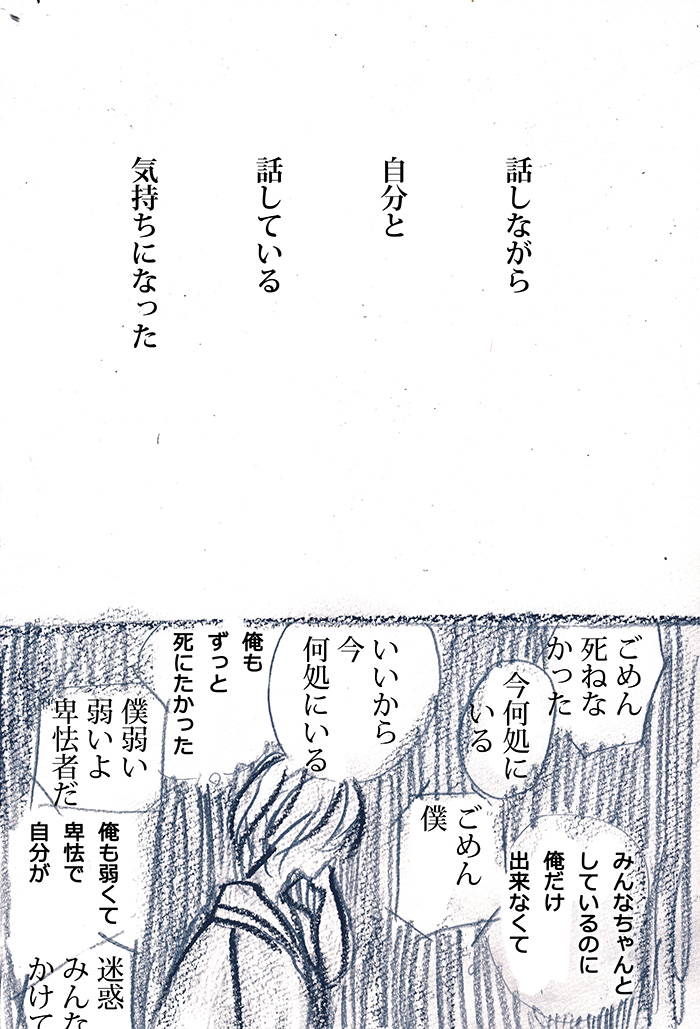 話しながら
自分と
話している
気持ちになった
ごめん
死ねな
かった
今何処に
いる
いいから
今
何処にいる
俺も
ずっと
死にたかった
僕弱い
弱いよ
卑怯者だ
みんなちゃんと
しているのに
俺だけ
出来なくて
ごめん
僕
俺も弱くて
卑怯で
自分が
迷惑
みんな
かけて